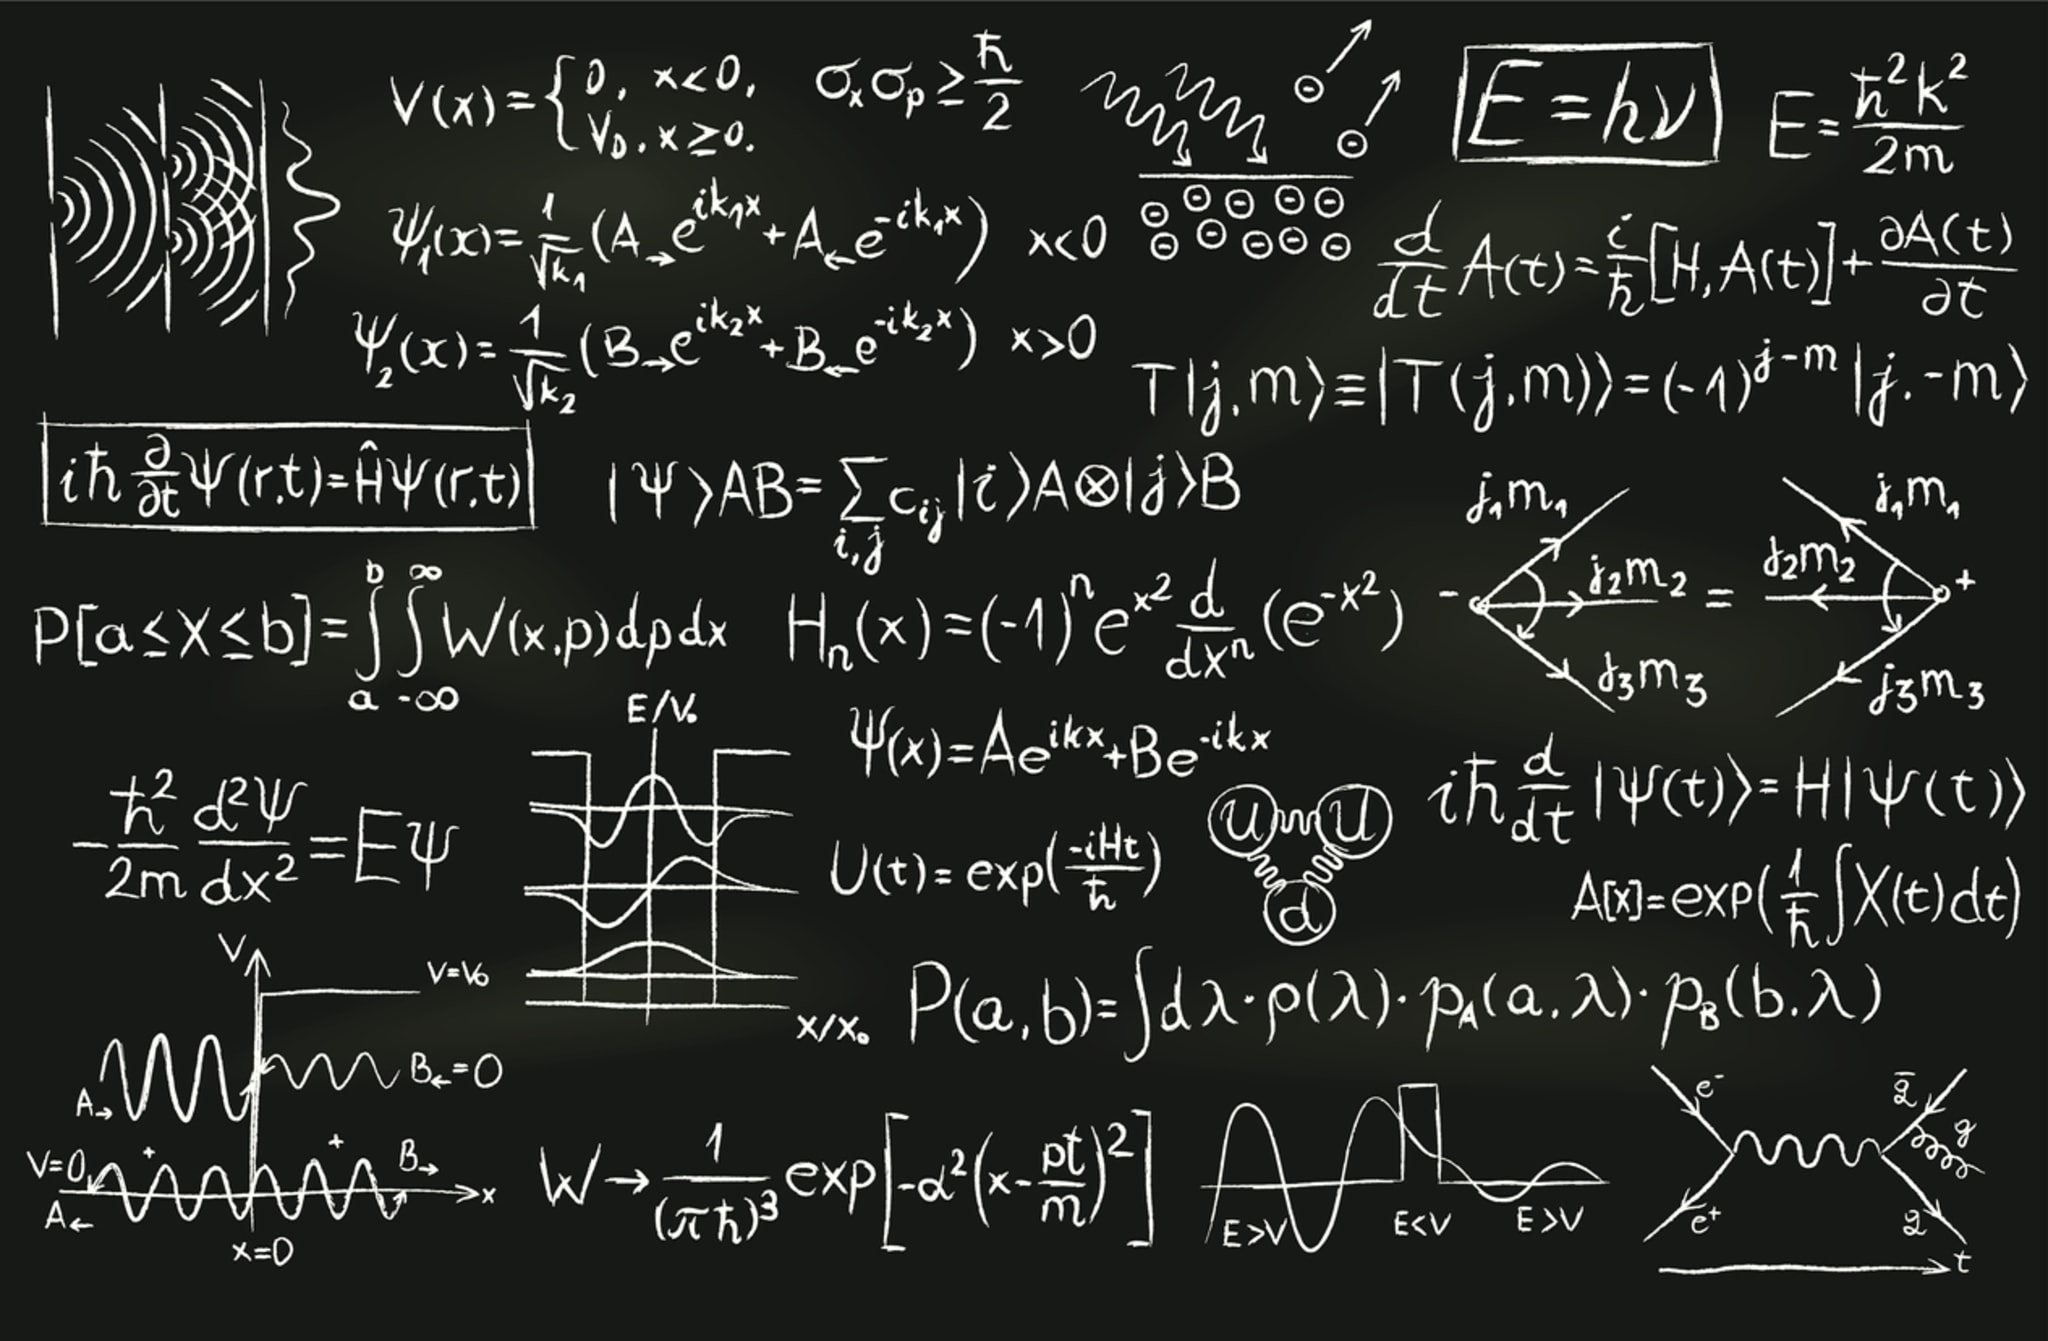 V(x)={0, x<0,
V₀, x≥0.
σₓσₚ≥ħ/2
E=hν
E=ħ²k²/2m
Ψ₁(x)=1/√k₁(A→e^{ik₁x}+A←e^{-ik₁x}) x<0
d/dt A(t)=i/ħ[H,A(t)]+∂A(t)/∂t
Ψ₂(x)=1/√k₂(B→e^{ik₂x}+B←e^{-ik₂x}) x>0
T|j,m⟩≡|T(j,m)⟩=(-1)^{j-m}|j.-m⟩
iħ ∂/∂t Ψ(r,t)=ĤΨ(r,t)
|Ψ⟩AB=∑_{i,j} c_{ij}|i⟩A⊗|j⟩B
j₁m₁
j₁m₁
- j₂m₂ = j₂m₂ +
j₃m₃
j₃m₃
P[a≤X≤b]=∫_a^b ∫_{-∞}^{∞} W(x,p)dpdx
Hₙ(x)=(-1)ⁿe^{x²} d/dxⁿ(e^{-x²})
E/V₀
Ψ(x)=Ae^{ikx}+Be^{-ikx}
-ħ²/2m d²Ψ/dx²=EΨ
iħ d/dt|Ψ(t)⟩=H|Ψ(t)⟩
U(t)=exp(-iHt/ħ)
u u
d
A[x]=exp(1/ħ∫X(t)dt)
x/x₀
P(a,b)=∫dλ·ρ(λ)·p_A(a.λ)·p_B(b.λ)
V
V=V₀
A→
B←=0
V=0
+ +
B→
A←
x
x=0
W→1/(πħ)³ exp[-α²(x-pt/m)²]
E>V E<V E>V
e⁻
e⁺
g
t